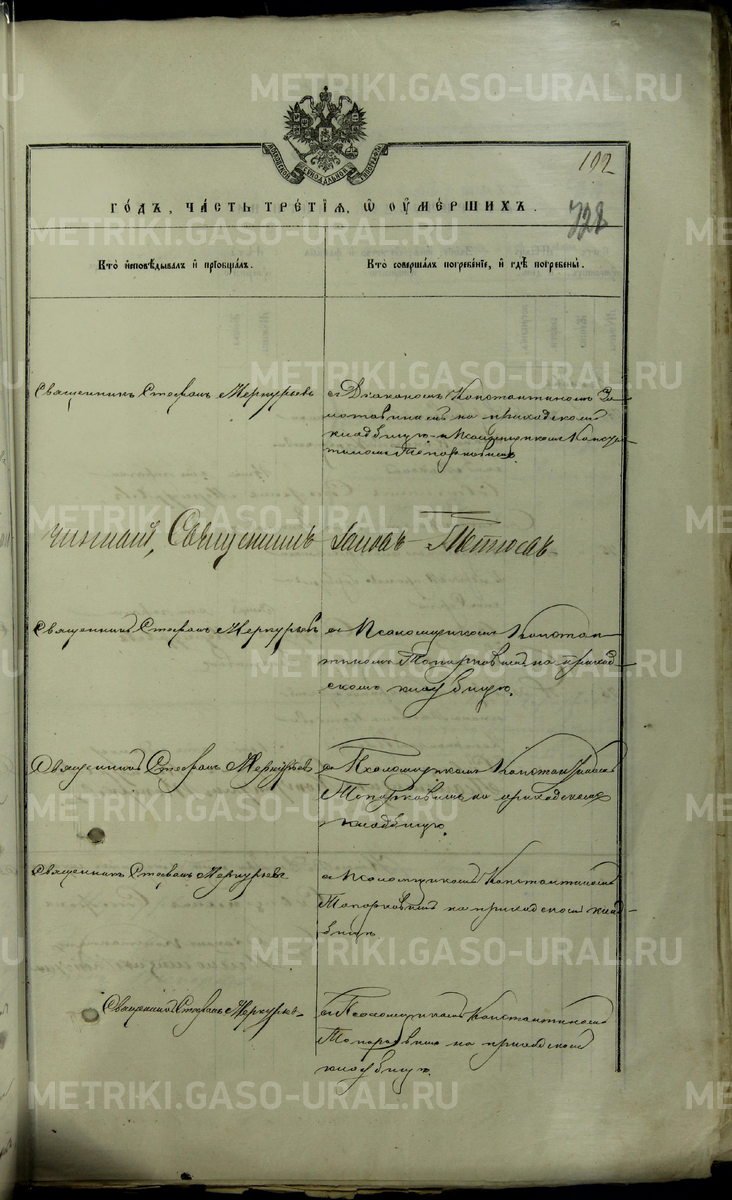 METRIKI.GASO-URAL.RU
МОСКОВСКОЙ СѴНОДАЛЬНОЙ ТИПОГРАФІИ
192
728
ГОДЪ, ЧАСТЬ ТРЕТІЯ, Ѡ ОУМЕРШИХЪ.
Кто исповѣдывалъ и пріобщалъ.
Кто совершалъ погребеніе, и гдѣ погребены.
Священникъ Стефанъ Меркурьевъ
съ Діакономъ Константиномъ
на приходскомъ
кладбищѣ и Псаломщикомъ Констан-
тиномъ Топорковымъ.
читалъ, Священникъ
Священникъ Стефанъ Меркурьевъ
съ Псаломщикомъ Констан-
тиномъ Топорковымъ на приход-
скомъ кладбищѣ.
Священникъ Стефанъ Меркурьевъ
съ Псаломщикомъ Константиномъ
Топорковымъ на приходскомъ
кладбищѣ.
Священникъ Стефанъ Меркурьевъ
съ Псаломщикомъ Константиномъ
Топорковымъ на приходскомъ клад-
бищѣ
Священникъ Стефанъ Меркурье-
съ Псаломщикомъ Константиномъ
Топорковымъ на приходскомъ
кладбищѣ.